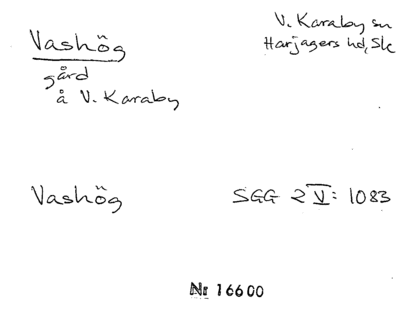 Vashög
V. Karaby sn
Harjagers hd, Sk
gård
å V. Karaby
Vashög
SGG 2 V: 1083
Nr 16600